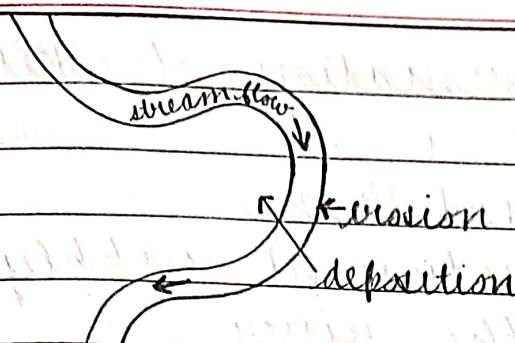 stream flow
erosion
deposition